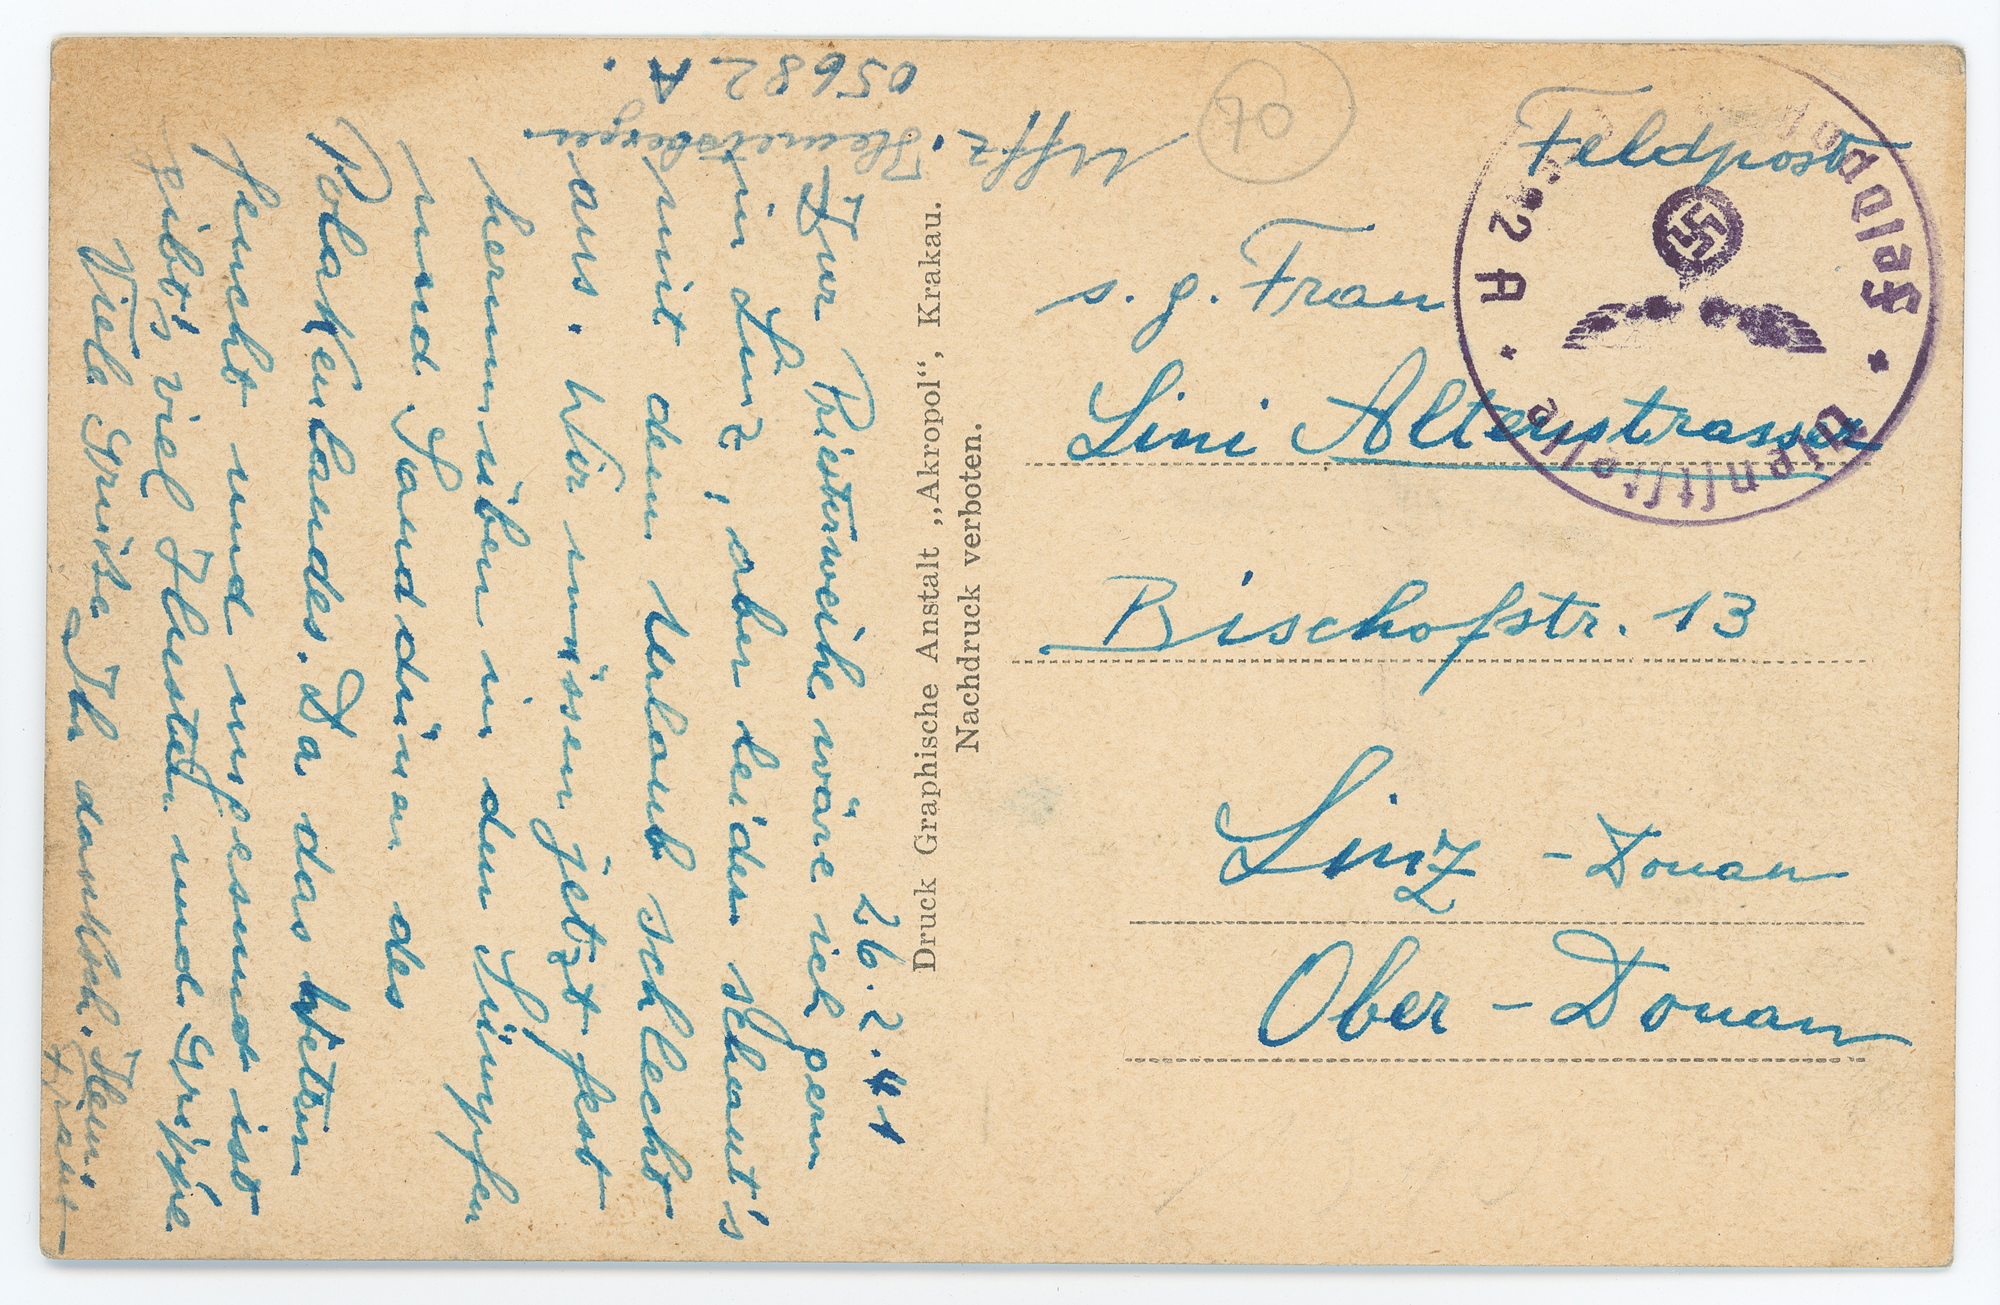 Feldpost
s. g. Frau
Lini Altenstrasser
Bischofstr. 13
Linz - Donau
Ober - Donau
Uffz.
05682 A.
26.2.41
Zur Priesterweihe wäre ich gern
in Linz, aber leider schaut's
mit dem Urlaub schlecht
aus. Wir müssen jetzt fest
herumüben in den Sümpfen
und Sanddünen des
Polakenlandes. Da das Wetter
feucht und ungesund ist
gibt's viel Husten und Grippe
Viele Grüsse Ihr dankb.
Druck Graphische Anstalt „Akropol“, Krakau.
Nachdruck verboten.
70
Dienststelle Feldpost
2 A